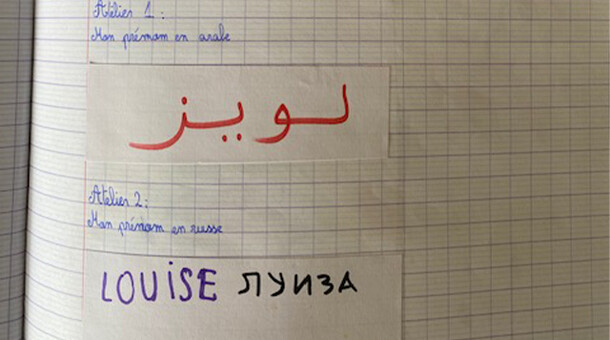 Atelier 1 :
Mon prénom en arabe
لويز
Atelier 2 :
Mon prénom en russe
LOUISE ЛУИЗА